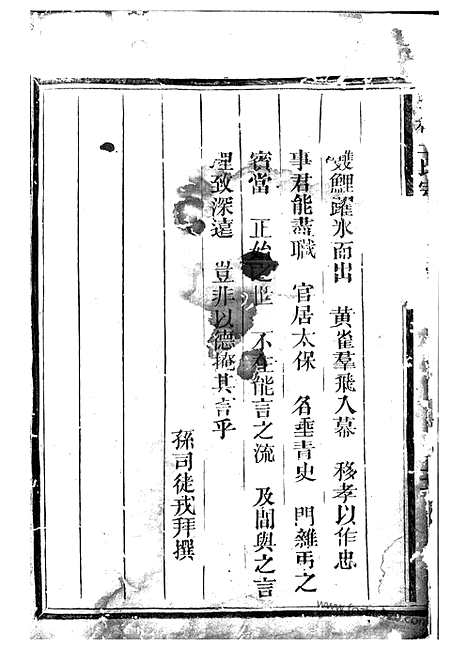 雙鯉躍氷而出 黄雀羣飛入幕 移孝以作忠
事君能盡職 官居太保 名垂青史 門雜丐之
賓當 正始之世 不在能言之流 及間與之言
理致深遠 豈非以德掩其言乎
孫司徒戎拜撰